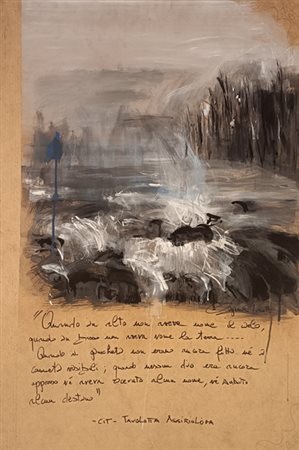 "Quando in alto non aveva nome il cielo,
quando in basso non aveva nome la terra .....
Quando i giuncheti non erano ancora fitti né i
canneti visibili; quando nessun dio era ancora
apparso né aveva ricevuto alcun nome, né subito
alcun destino"
-CIT- TAVOLETTA